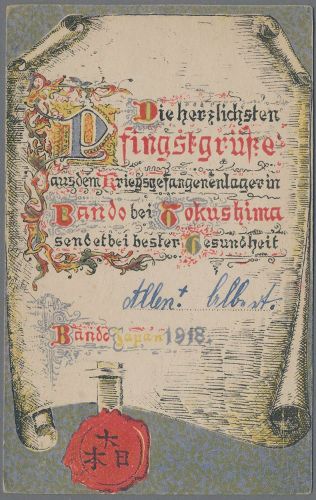 Die herzlichsten
Pfingstgrüße
aus dem Kriegsgefangenenlager in
Bando bei Tokushima
sendet bei bester Gesundheit
Bando Japan 1918.
大日本